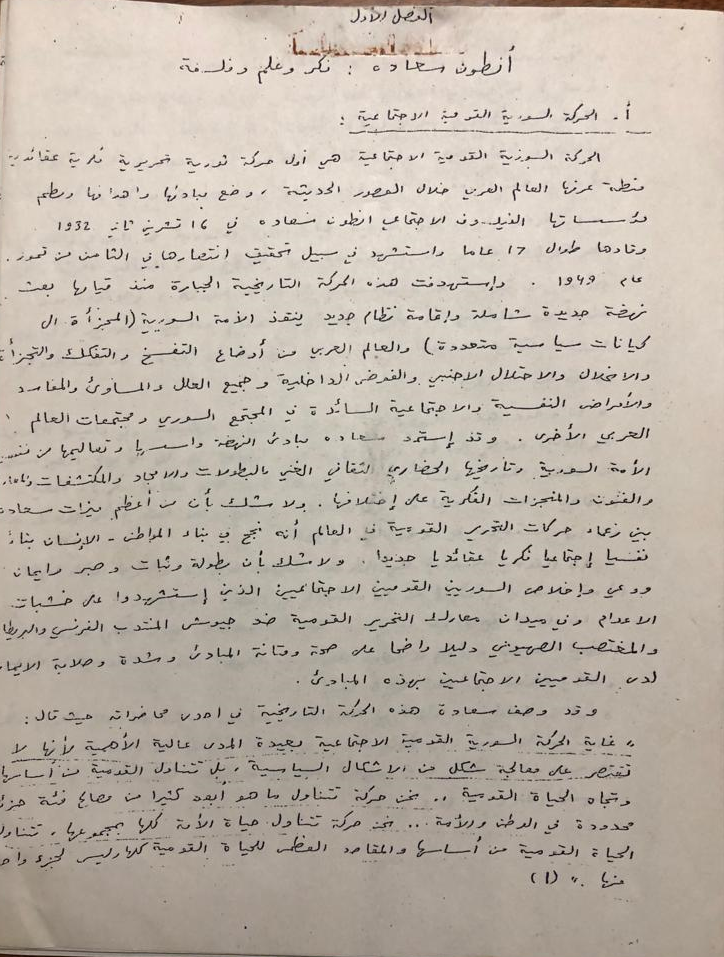 الفصل الأول
أنطون سعاده : فكر وعلم وفلسفة
أ. الحركة السورية القومية الاجتماعية :
الحركة السورية القومية الاجتماعية هي أول حركة ثورية تحريرية فكرية عقائدية
منظمة عرفها العالم العربي خلال العصور الحديثة ، وضع مبادئها وأهدافها ونظم
مؤسساتها الفيلسوف الاجتماعي انطون سعاده في ١٦ تشرين ثاني ١٩٣٢
وقادها طوال ١٧ عاما واستشهد في سبيل تحقيق انتصارها في الثامن من تموز
عام ١٩٤٩ . وإستهدفت هذه الحركة التاريخية الجبارة منذ قيامها بعث
نهضة جديدة شاملة وإقامة نظام جديد ينقذ الأمة السورية (المجزأة الى
كيانات سياسية متعددة) والعالم العربي من أوضاع التفسخ والتفكك والتجزأة
والانحلال والاحتلال الاجنبي والفوضى الداخلية وجميع العلل والمساوئ والمفاسد
والأمراض النفسية والاجتماعية السائدة في المجتمع السوري ومجتمعات العالم
العربي الأخرى . وقد إستمد سعاده مبادئ النهضة واسسها وتعاليمها من نفسية
الأمة السورية وتاريخها الحضاري الثقافي الغني بالبطولات والامجاد والمكتشفات
والفنون والمنجزات الفكرية على إختلافها . ولا شك بأن من أعظم ميزات سعاده
بين زعماء حركات التحرير القومية في العالم أنه نجح في بناء المواطن - الإنسان بناءً
نفسيا إجتماعيا فكريا عقائديا جديدا . ولا شك بأن بطولة وثبات وصبر وايمان
ووعي وإخلاص السوريين القوميين الاجتماعيين الذين إستشهدوا على خشبات
الاعدام وفي ميدان معارك التحرير القومية ضد جيوش المنتدب الفرنسي والبريطا
والمغتصب الصهيوني دليلا واضحا على صحة ومتانة المبادئ وشدة وصلابة الايمان
لدى القوميين الاجتماعيين بهذه المبادئ .
وقد وصف سعادة هذه الحركة التاريخية في احدى محاضراته حيث قال :
" غاية الحركة السورية القومية الاجتماعية بعيدة المدى عالية الأهمية لأنها لا
تقتصر على معالجة شكل من الاشكال السياسية ، بل تتناول القومية من أساسها
وتجاه الحياة القومية .. نحن حركة تتناول ما هو أبعد كثيرا من مصالح فئة جزئ
محدودة في الوطن والأمة ... نحن حركة تتناول حياة الأمة كلها بمجموعها ، تتناول
الحياة القومية من أساسها والمقاصد العظمى للحياة القومية كلها وليس لجزء واحد
منها . " (١)